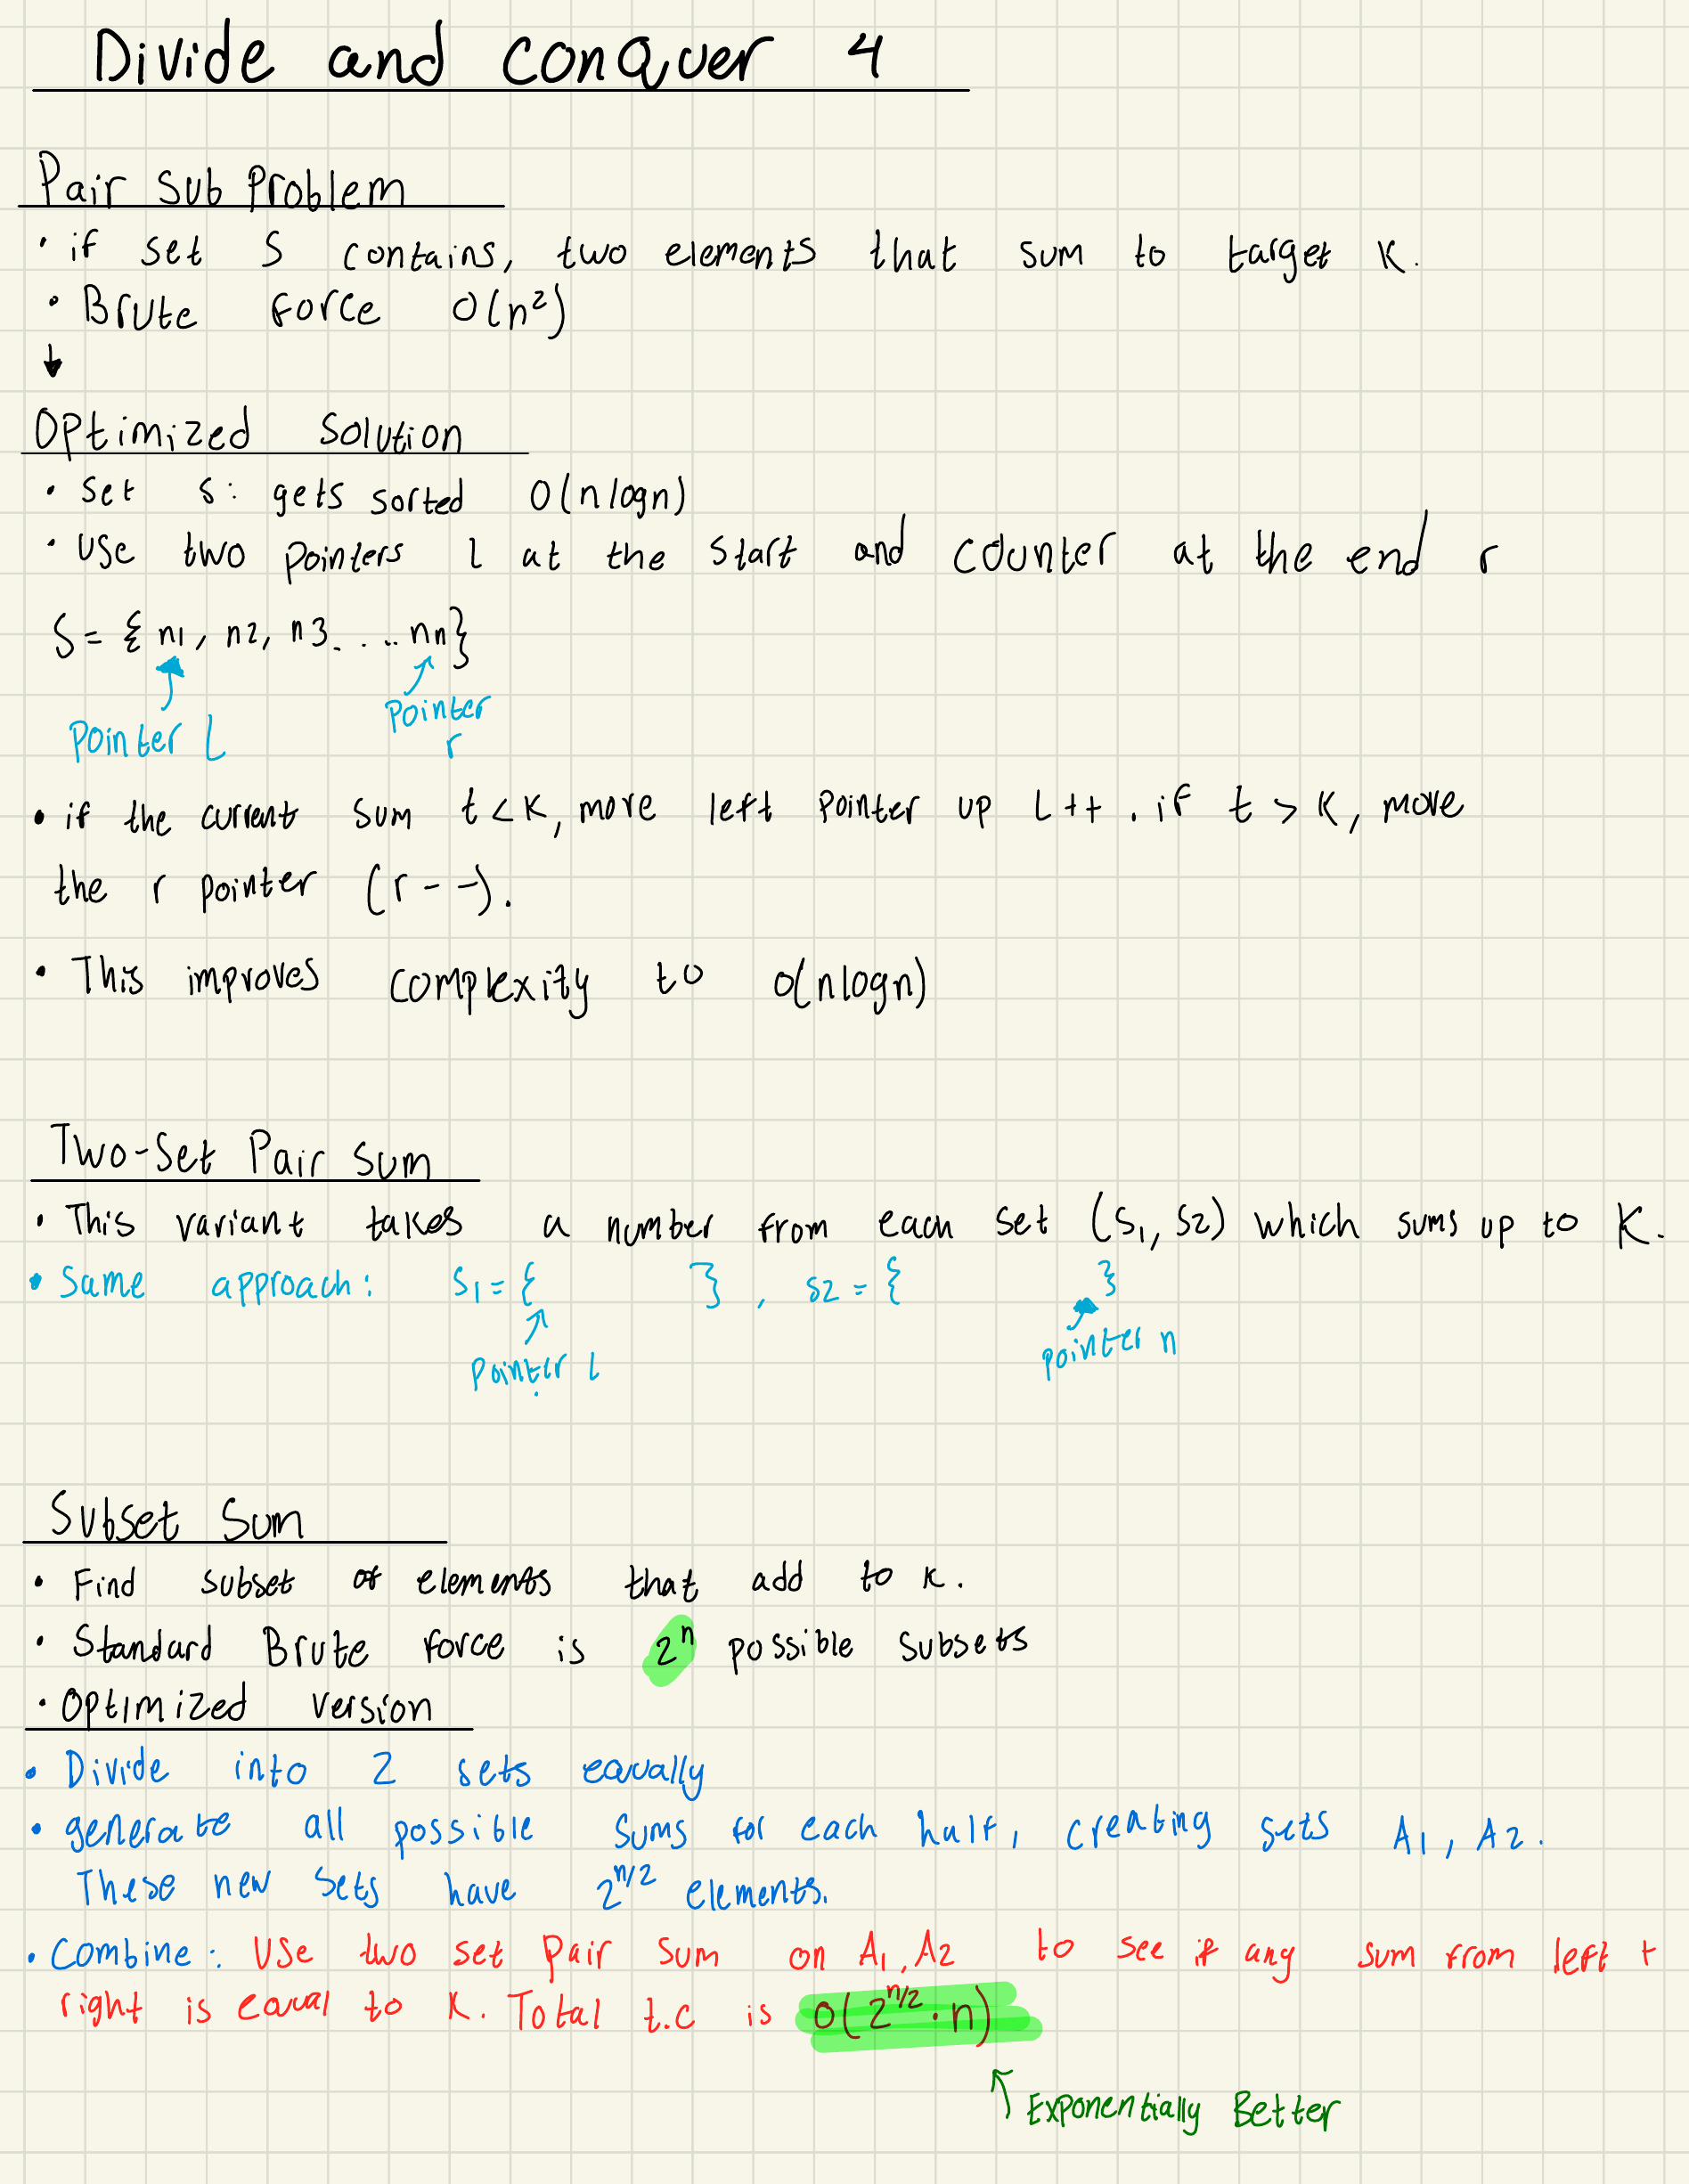 Divide and conquer 4
Pair Sub Problem
• if set S contains, two elements that sum to target K.
• Brute force O(n²)
↓
Optimized Solution
• Set S: gets sorted O(nlogn)
• Use two pointers l at the start and counter at the end r
S = { n1, n2, n3. . .. nn}
Pointer L
Pointer
r
• if the current sum t < K, more left pointer up L++. if t > K, more
the r pointer (r--).
• This improves complexity to O(nlogn)
Two-Set Pair Sum
• This variant takes a number from each set (S1, S2) which sums up to K.
• Same approach: S1 = { } , S2 = { }
Pointer l
pointer n
Subset Sum
• Find subset of elements that add to K.
• Standard Brute force is 2ⁿ possible subsets
• Optimized version
• Divide into 2 sets equally
• generate all possible sums for each half, creating sets A1, A2.
These new sets have 2^(n/2) elements.
• Combine: Use two set Pair sum on A1, A2 to see if any sum from left +
right is equal to K. Total t.c is O(2^(n/2) · n)
Exponentially Better